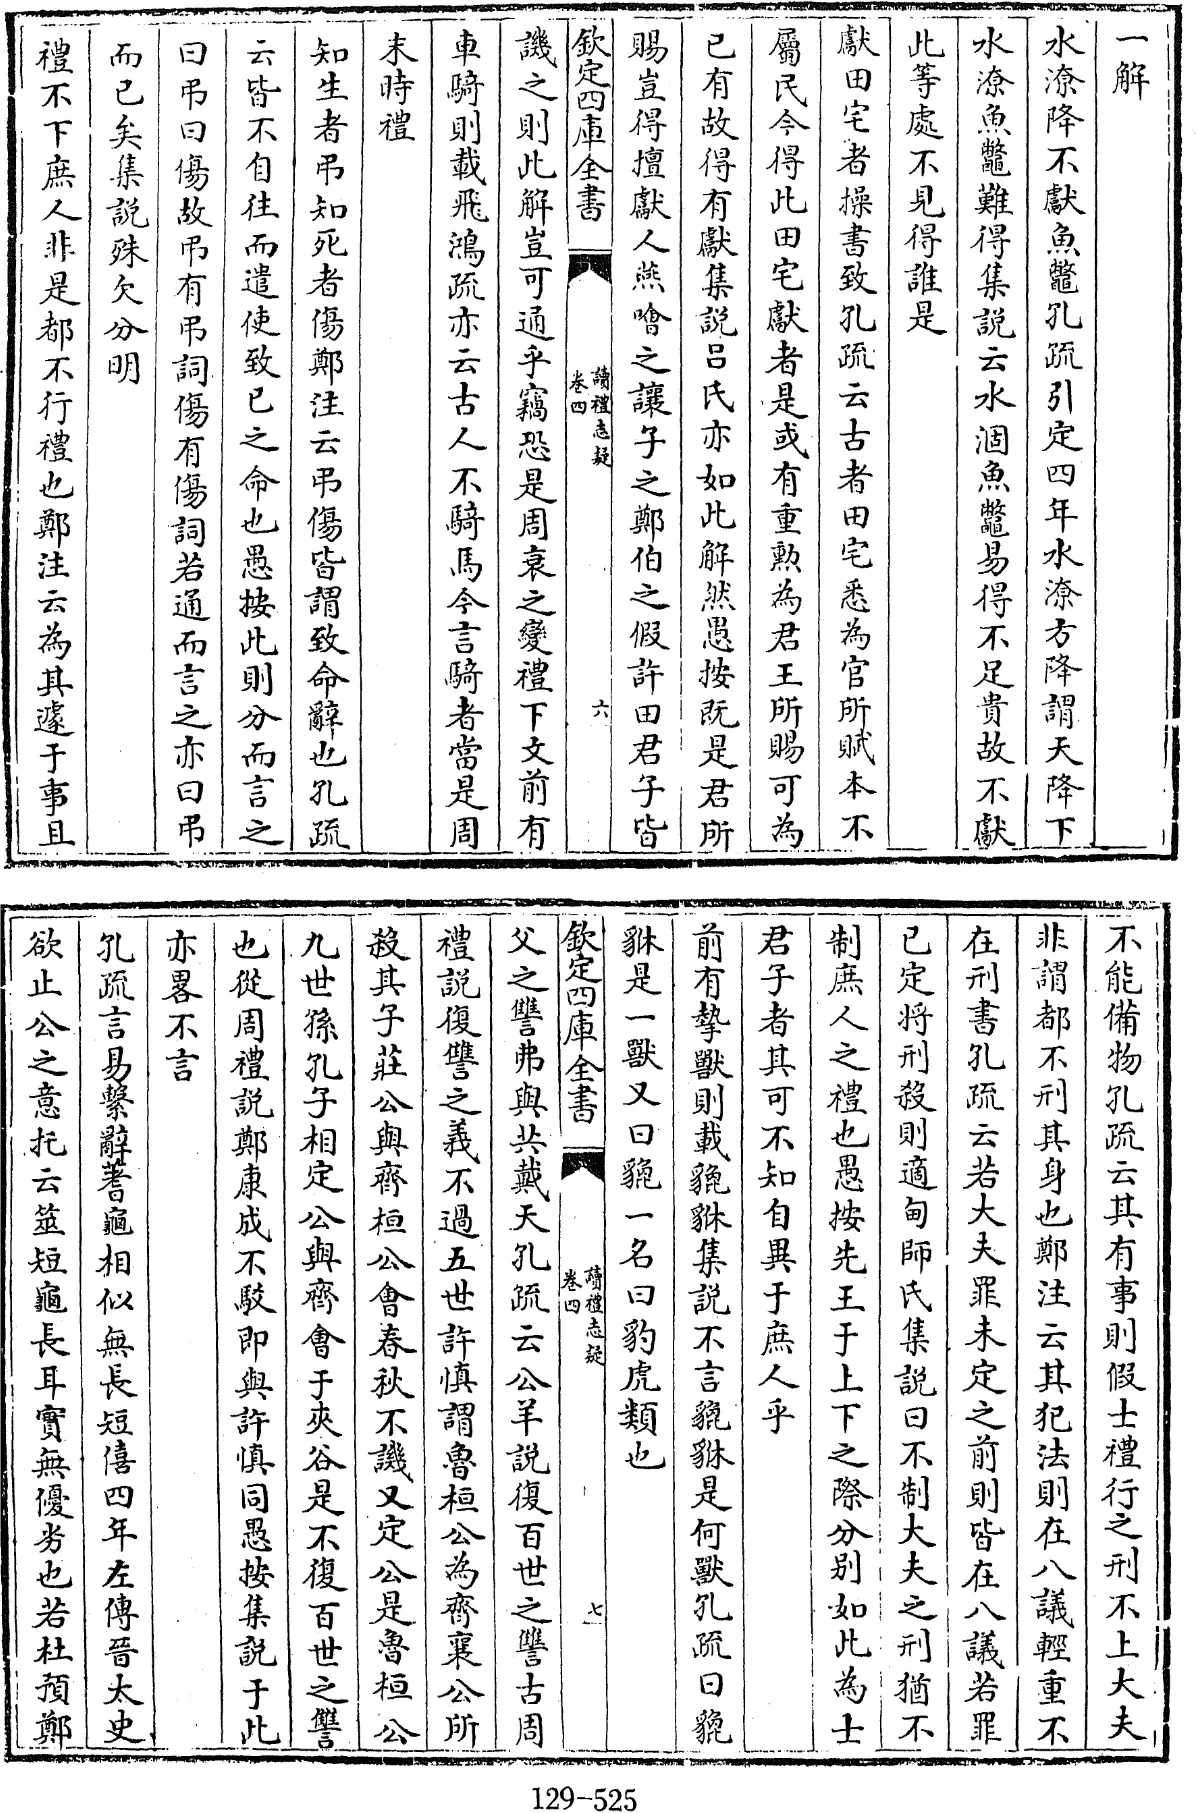 一解
水潦降不獻魚鼈孔疏引定四年水潦方降謂天降下
水潦魚鼈難得集説云水涸魚鼈易得不足貴故不獻
此等處不見得誰是
獻田宅者操書致孔疏云古者田宅悉為官所賦本不
屬民今得此田宅獻者是或有重勲為君王所賜可為
已有故得有獻集説吕氏亦如此解然愚按既是君所
賜豈得擅獻人燕噲之讓子之鄭伯之假許田君子皆
欽定四庫全書
讀禮志疑
卷四
六
譏之則此解豈可通乎竊恐是周衰之變禮下文前有
車騎則載飛鴻疏亦云古人不騎馬今言騎者當是周
末時禮
知生者弔知死者傷鄭注云弔傷皆謂致命辭也孔疏
云皆不自往而遣使致已之命也愚按此則分而言之
曰弔曰傷故弔有弔詞傷有傷詞若通而言之亦曰弔
而已矣集説殊欠分明
禮不下庶人非是都不行禮也鄭注云為其遽于事且
不能備物孔疏云其有事則假士禮行之刑不上大夫
非謂都不刑其身也鄭注云其犯法則在八議輕重不
在刑書孔疏云若大夫罪未定之前則皆在八議若罪
已定將刑殺則適甸師氏集説曰不制大夫之刑猶不
制庶人之禮也愚按先王于上下之際分别如此為士
君子者其可不知自異于庶人乎
前有摯獸則載貔貅集説不言貔貅是何獸孔疏曰貔
貅是一獸又曰貔一名曰豹虎類也
欽定四庫全書
讀禮志疑
卷四
七
父之讐弗與共戴天孔疏云公羊説復百世之讐古周
禮説復讐之義不過五世許慎謂魯桓公為齊襄公所
殺其子莊公與齊桓公會春秋不譏又定公是魯桓公
九世孫孔子相定公與齊會于夾谷是不復百世之讐
也從周禮説鄭康成不駁即與許慎同愚按集説于此
亦畧不言
孔疏言易繫辭蓍龜相似無長短僖四年左傳晉太史
欲止公之意托云筮短龜長耳實無優劣也若杜預鄭
129-525